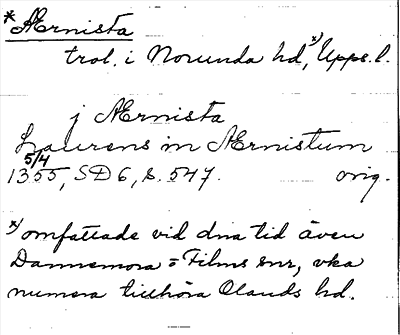 *Ærnista
trol. i Norunda hd,ˣ⁾ Upps. l.
j Ærnista
Laurens in Ærnistum
5/4
1355, SD 6, s. 547. orig.
x) omfattade vid dna tid även
Dannemora o Films snr, vka
numera tillhöra Olands hd.